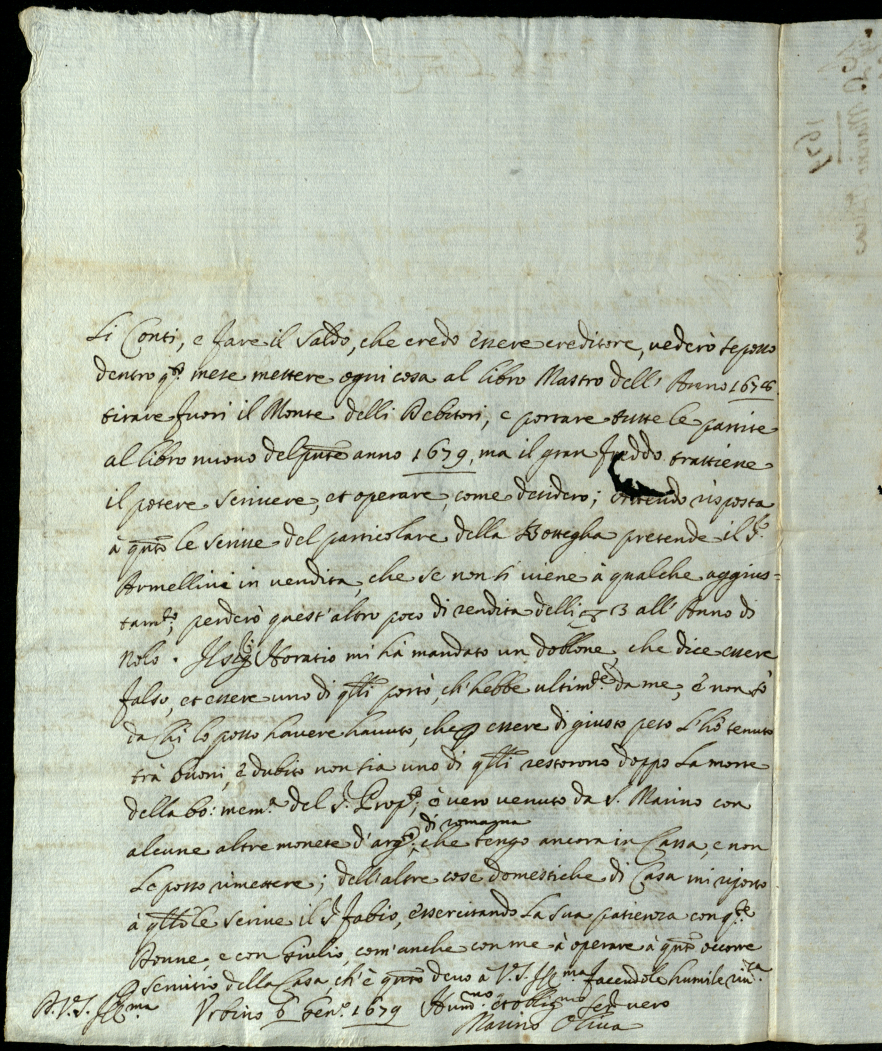 Li Conti, e fare il Saldo, che credo essere creditore, vederò se posso
dentro q.º mese mettere ogni cosa al libro Mastro dell'Anno 1678
tirare fuori il Monte delli Debitori, e portare tutte le partite
al libro nuovo del pnte anno 1679, ma il gran freddo trattiene
il potere scrivere, et operare, come desidero; risposta
à qnto le scrisse del particolare della Bottegha pretende il S.r
Armellini in vendita, che se non si viene à qualche aggius=
tam.to, perderò quest'altro poco di rendita delli 3 all'Anno di
Nolo. Il Sig.r Horatio mi hà mandato un doblone, che dice essere
falso, et essere uno di qlli portò, ch'hebbe ultim.te da me, è non sò
da chi lo posso havere havuto, che p essere di giusto peso l'hò tenuto
trà buoni, è dubito non sia uno di qlli restorono doppo la morte
della bo: mem.a del S.r Prop.to, ò vero venuto da S. Marino con
alcune altre monete d'arg.to di romagna, che tengo ancora in Cassa, e non
le posso rimettere; dell'altre cose domestiche di Casa mi riporto
à qllo le scrive il S.r Fabio, essercitando la sua patienza con q.te
Donne, e con Giulio, com'anche con me à operare à qnto occorre
servitio della Casa, ch'è qnto devo à V.S. Ill.ma facendole humile riv.za
D. V.S. Ill.ma Urbino 6 Gen.º 1679 Hum.mo et oblig.mo Ser.r vero
Marino Oliva
1679